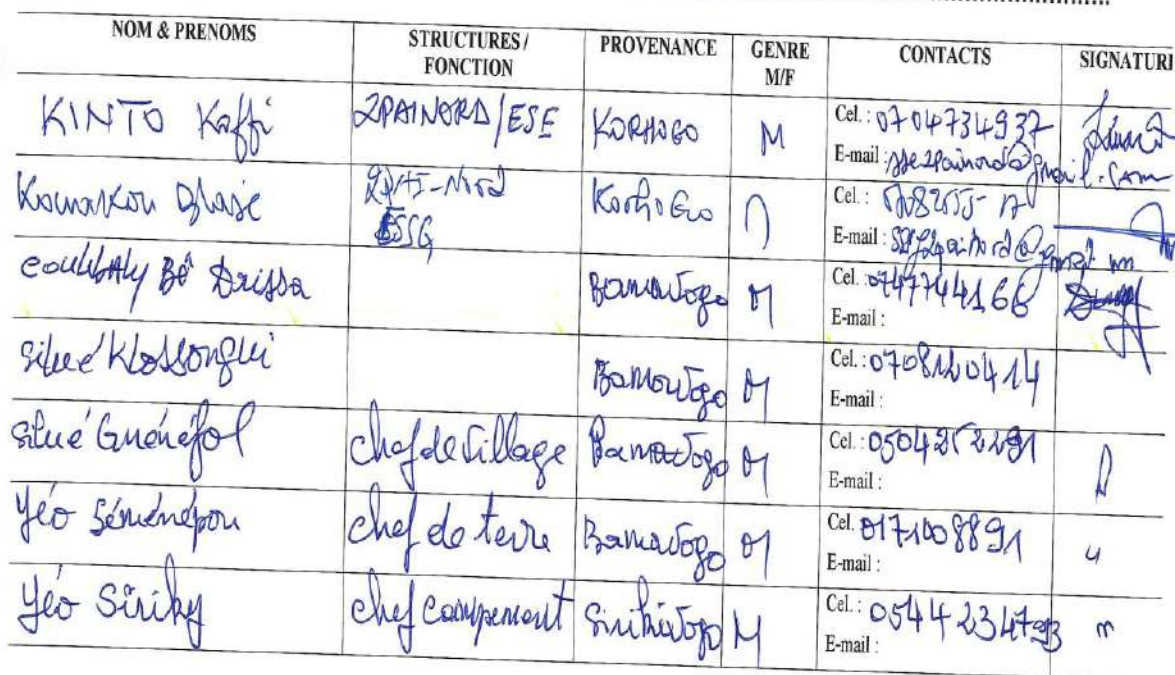 NOM & PRENOMS STRUCTURES / FONCTION PROVENANCE GENRE M/F CONTACTS SIGNATURE
KINTO Koffi 2PAINORD/ESE KORHOGO M Cel. : 0704734937
E-mail : sse2painord@gmail.com
Kouakou Blaise 2PAI-Nord SSG Korhogo Cel. :
E-mail :
Coulibaly Bê Drissa Bamavogo M Cel. : 0747744166
E-mail :
Silué Klossongui Bamavogo M Cel. : 0708120414
E-mail :
Silué Guénéfol chef de village Bamavogo M Cel. : 0504252291
E-mail :
Yéo Séménépou chef de terre Bamavogo M Cel. 0171008891
E-mail :
Yéo Siriky chef campement Sirikivogo M Cel. :
E-mail :